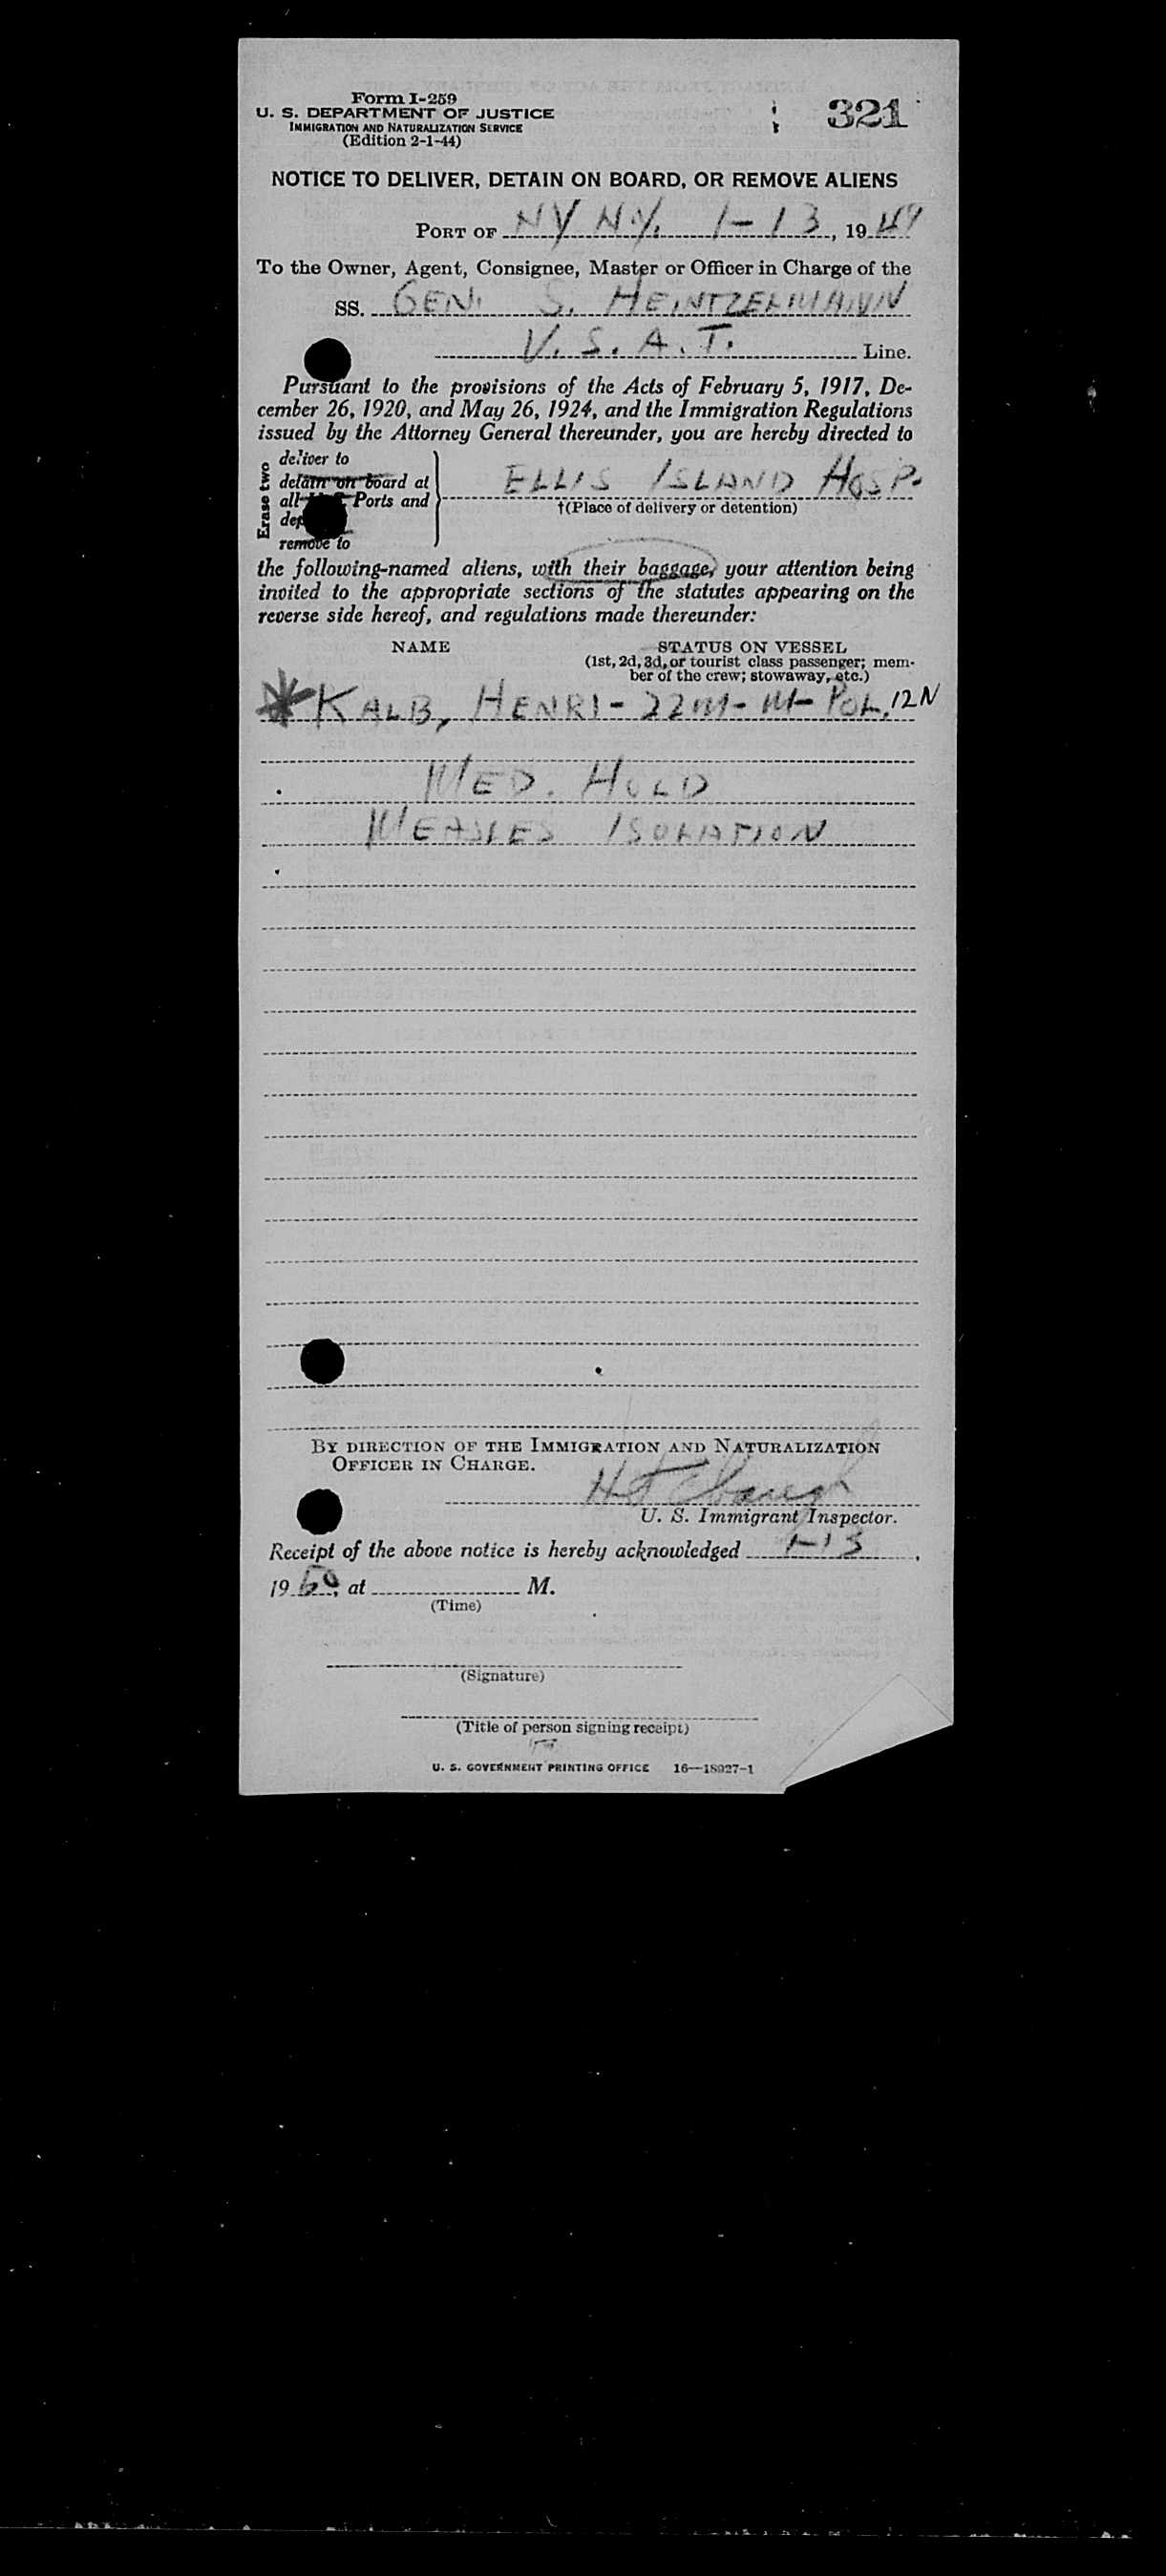 Form I-259
U. S. DEPARTMENT OF JUSTICE
IMMIGRATION AND NATURALIZATION SERVICE
(Edition 2-1-44)
321
NOTICE TO DELIVER, DETAIN ON BOARD, OR REMOVE ALIENS
PORT OF NY N.Y. 1-13, 1949
To the Owner, Agent, Consignee, Master or Officer in Charge of the
SS. GEN. S. HEINTZELMANN
U.S.A.T. Line.
Pursuant to the provisions of the Acts of February 5, 1917, De-
cember 26, 1920, and May 26, 1924, and the Immigration Regulations
issued by the Attorney General thereunder, you are hereby directed to
Erase two
deliver to
detain on board at
all Ports and
remove to
ELLIS ISLAND HOSP.
†(Place of delivery or detention)
the following-named aliens, with their baggage, your attention being
invited to the appropriate sections of the statutes appearing on the
reverse side hereof, and regulations made thereunder:
NAME
STATUS ON VESSEL
(1st, 2d, 3d, or tourist class passenger; mem-
ber of the crew; stowaway, etc.)
* KALB, HENRI - 22M - M - POL. 12N
MED. HOLD
MEASLES ISOLATION
BY DIRECTION OF THE IMMIGRATION AND NATURALIZATION
OFFICER IN CHARGE.
U. S. Immigrant Inspector.
Receipt of the above notice is hereby acknowledged 1-13,
19, at M.
(Time)
(Signature)
(Title of person signing receipt)
U. S. GOVERNMENT PRINTING OFFICE 16—18927-1